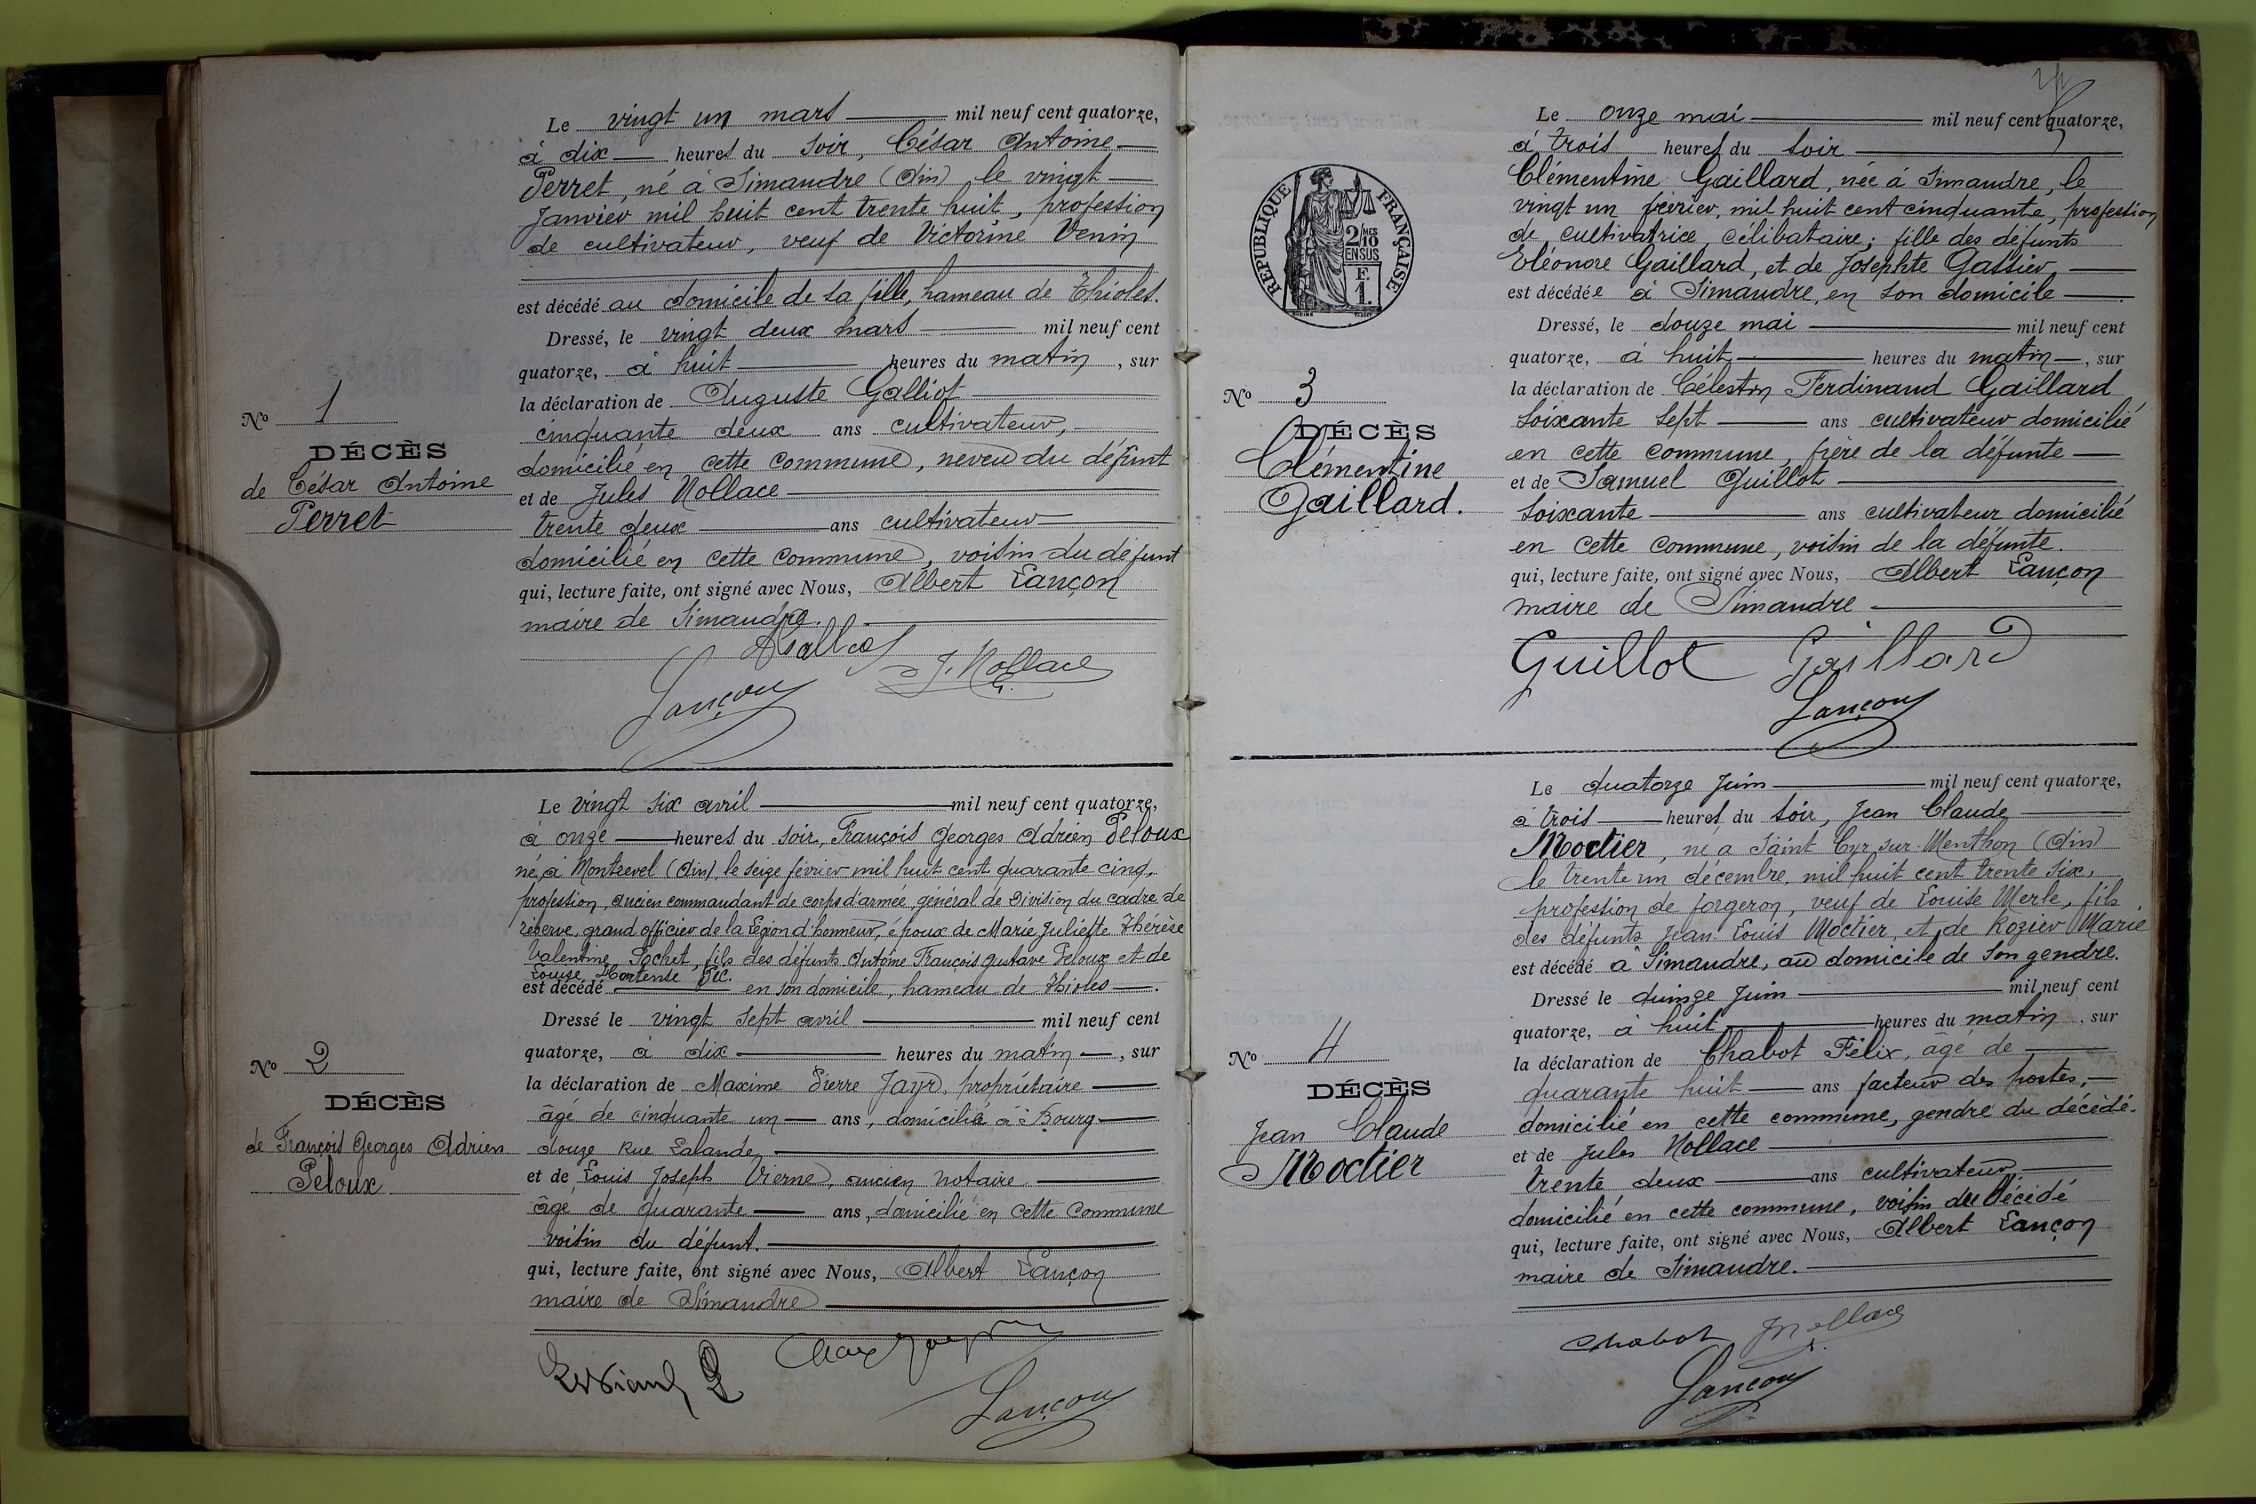 Le vingt un mars mil neuf cent quatorze,
à dix heures du soir, César Antoine
Perret, né à Simandre (Ain) le vingt
Janvier mil huit cent trente huit, profession
de cultivateur, veuf de Victorine Venin
est décédé au domicile de sa fille, hameau de Thioles.
Dressé, le vingt deux mars mil neuf cent
quatorze, à huit heures du matin, sur
la déclaration de Auguste Galliot
cinquante deux ans cultivateur,
domicilié en cette commune, neveu du défunt
et de Jules Nollace
trente deux ans cultivateur
domicilié en cette commune, voisin du défunt
qui, lecture faite, ont signé avec Nous, Albert Lançon
maire de Simandre.
J. Nollace
Lançon
No 1
DÉCÈS
de César Antoine
Perret
Le vingt six avril mil neuf cent quatorze,
à onze heures du soir, François Georges Adrien Peloux
né à Montrevel (Ain), le seize février mil huit cent quarante cinq,
profession, ancien commandant de corps d'armée, général de Division du cadre de
réserve, grand officier de la Légion d'honneur, époux de Marie Juliette Thérèse
Valentine Pochet, fils des défunts Antoine François Gustave Peloux et de
Louise Hortense Pic.
est décédé en son domicile, hameau de Thioles.
Dressé le vingt sept avril mil neuf cent
quatorze, à dix heures du matin, sur
la déclaration de Maxime Pierre Jayr, propriétaire
âgé de cinquante un ans, domicilié à Bourg
douze Rue Lalande
et de Louis Joseph Vierne, ancien notaire
âgé de quarante ans, domicilié en cette commune
voisin du défunt.
qui, lecture faite, ont signé avec Nous, Albert Lançon
maire de Simandre
Lançon
No 2
DÉCÈS
de François Georges Adrien
Peloux
Le onze mai mil neuf cent quatorze,
à trois heures du soir
Clémentine Gaillard, née à Simandre, le
vingt un février, mil huit cent cinquante, profession
de cultivatrice, célibataire; fille des défunts
Eléonore Gaillard, et de Josephte Gassier
est décédée à Simandre, en son domicile.
Dressé, le douze mai mil neuf cent
quatorze, à huit heures du matin, sur
la déclaration de Célestin Ferdinand Gaillard
soixante sept ans cultivateur domicilié
en cette commune, frère de la défunte
et de Samuel Guillot
soixante ans cultivateur domicilié
en cette commune, voisin de la défunte.
qui, lecture faite, ont signé avec Nous, Albert Lançon
maire de Simandre
Guillot Gaillard
Lançon
RÉPUBLIQUE FRANÇAISE
2/10 MES
EN SUS
F.
1.
No 3
DÉCÈS
Clémentine
Gaillard.
Le quatorze Juin mil neuf cent quatorze,
à trois heures du soir, Jean Claude
Moctier, né à Saint Cyr sur Menthon (Ain)
le trente un décembre, mil huit cent trente six,
profession de forgeron, veuf de Louise Merle, fils
des défunts Jean Louis Moctier, et de Rozier Marie
est décédé a Simandre, au domicile de son gendre.
Dressé le quinze Juin mil neuf cent
quatorze, à huit heures du matin, sur
la déclaration de Chabot Félix, âgé de
quarante huit ans facteur des postes,
domicilié en cette commune, gendre du décédé.
et de Jules Nollace
trente deux ans cultivateur,
domicilié en cette commune, voisin du décédé
qui, lecture faite, ont signé avec Nous, Albert Lançon
maire de Simandre.
Chabot Nollace
Lançon
No 4
DÉCÈS
Jean Claude
Moctier